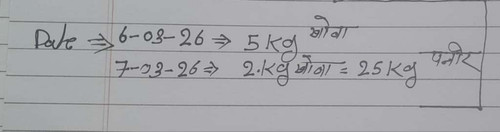 Date ⇒ 6-03-26 ⇒ 5 Kg खोवा
7-03-26 ⇒ 2.Kg खोवा = 25 Kg पनीर